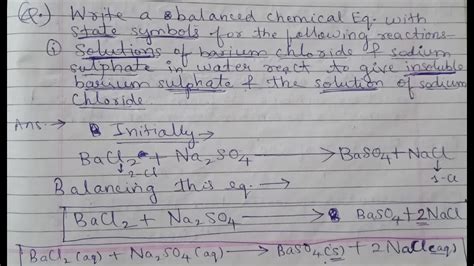 Q.) Write a balanced chemical Eq. with
state symbols for the following reactions-
(i) Solutions of barium chloride & sodium
sulphate in water react to give insoluble
barium sulphate & the solution of sodium
chloride.
Ans → Initially →
BaCl₂ + Na₂SO₄ ⟶ BaSO₄ + NaCl
↓2-Cl ↓1-Cl
Balancing this eq. ⟶
BaCl₂ + Na₂SO₄ ⟶ BaSO₄ + 2NaCl
BaCl₂ (aq) + Na₂SO₄ (aq) ⟶ BaSO₄ (s) + 2NaCl (aq)